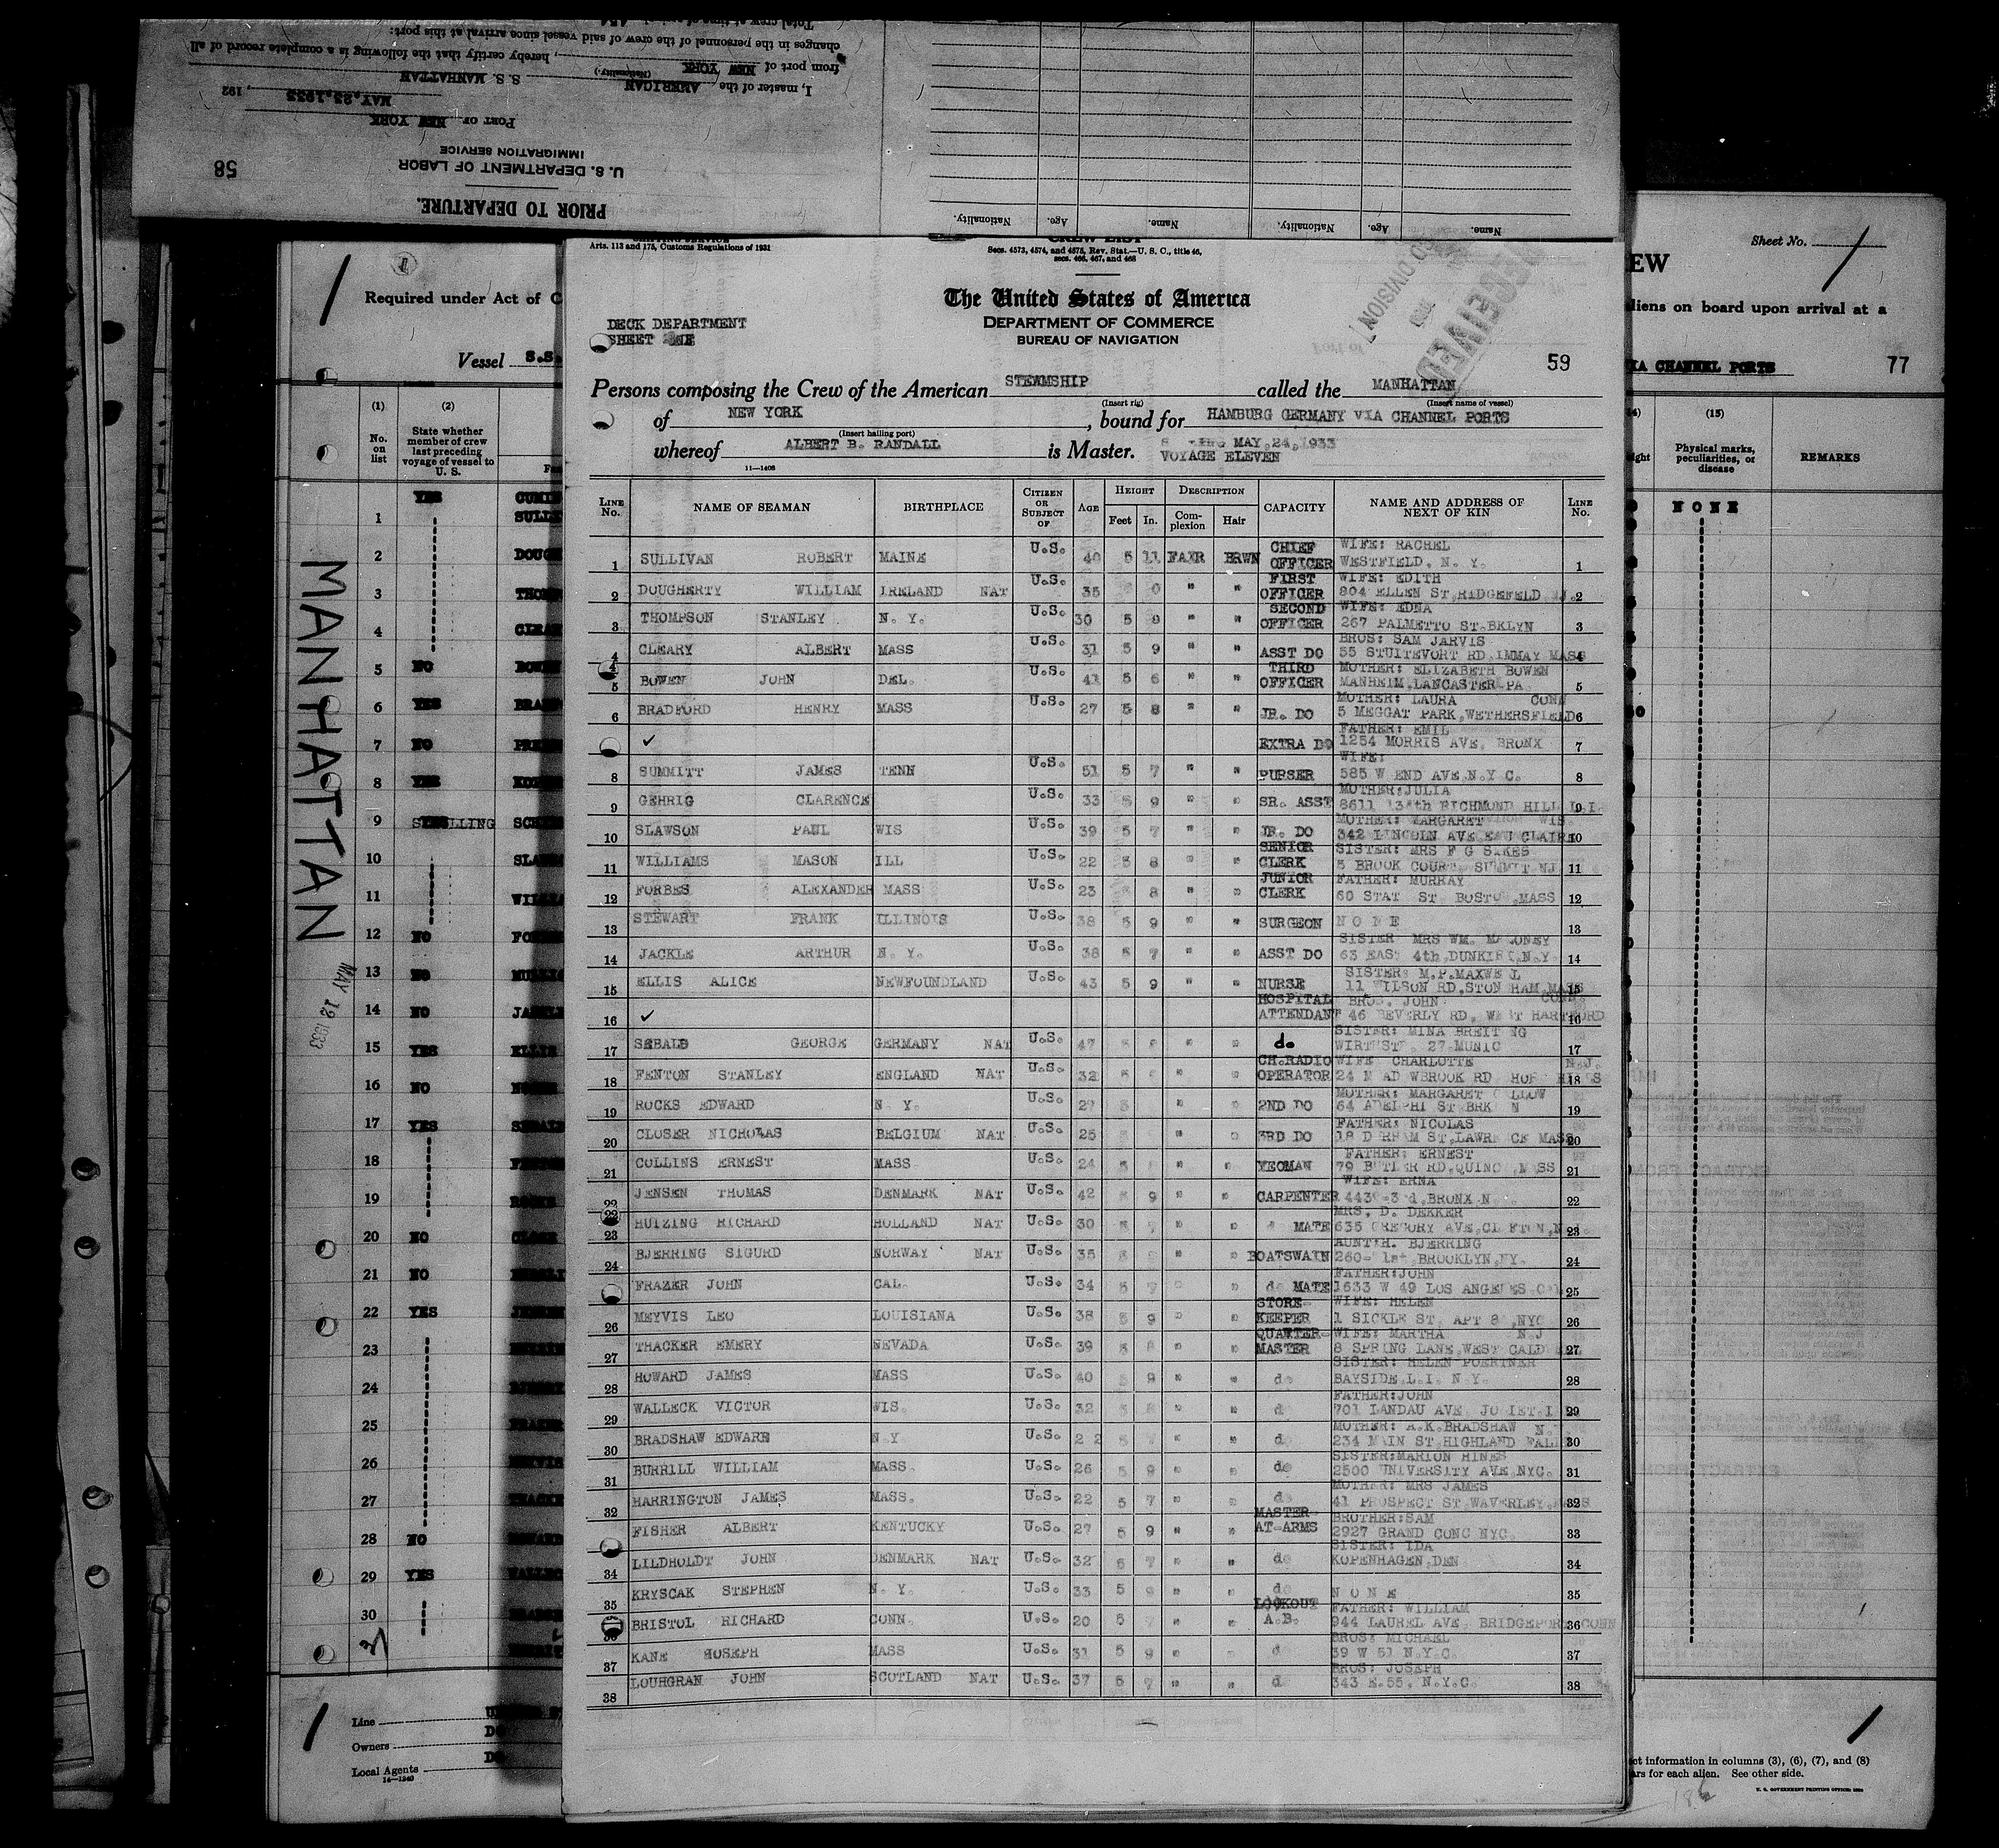 Total crew at time of arrival 454
changes in the personnel of the crew of said vessel since arrival at this port:
from port of NEW YORK, hereby certify that the following is a complete record of all
(Nationality.)
I, master of the AMERICAN S. S. MANHATTAN
MAY,23,1933, 192
PORT OF NEW YORK
IMMIGRATION SERVICE
U. S. DEPARTMENT OF LABOR
58
PRIOR TO DEPARTURE.
Name. Age. Nationality. Name. Age. Nationality.
Sheet No.
EW
liens on board upon arrival at a
CHANNEL PORTS 77
(15)
Physical marks, peculiarities, or disease
REMARKS
NONE
1
Required under Act of C
Vessel S.S.
(1) (2)
No. on list
State whether member of crew last preceding voyage of vessel to U. S.
YES
1
2
3
4
5 NO
6 YES
7 NO
8 YES
9
10
11
12 NO
13 NO
14 NO
15 YES
16 NO
17 YES
18
19
20 NO
21 NO
22 YES
23
24
25
26
27
28 NO
29 YES
30
31
MANHATTAN
MAY 12 1933
Line
Owners
Local Agents
14—1240
Arts. 113 and 175, Customs Regulations of 1931
CREW LIST
Secs. 4573, 4574, and 4575, Rev. Stat.—U. S. C., title 46, secs. 466, 467, and 468
The United States of America
DEPARTMENT OF COMMERCE
BUREAU OF NAVIGATION
DECK DEPARTMENT
SHEET ONE
RECEIVED
DIVISION
59
Persons composing the Crew of the American STEAMSHIP called the MANHATTAN
(Insert rig) (Insert name of vessel)
of NEW YORK, bound for HAMBURG GERMANY VIA CHANNEL PORTS
(Insert hailing port)
whereof ALBERT B. RANDALL is Master. MAY,24,1933
VOYAGE ELEVEN
11—1408
LINE No. NAME OF SEAMAN BIRTHPLACE CITIZEN OR SUBJECT OF AGE HEIGHT Feet In. DESCRIPTION Complexion Hair CAPACITY NAME AND ADDRESS OF NEXT OF KIN LINE No.
1 SULLIVAN ROBERT MAINE U.S. 40 5 11 FAIR BRWN CHIEF OFFICER WIFE: RACHEL WESTFIELD, N. Y. 1
2 DOUGHERTY WILLIAM IRELAND NAT U.S. 35 0 " " FIRST OFFICER WIFE: EDITH 804 ELLEN ST RIDGEFELD NJ 2
3 THOMPSON STANLEY N. Y. U.S. 30 5 9 " " SECOND OFFICER WIFE: EDNA 267 PALMETTO ST.BKLYN 3
4 CLEARY ALBERT MASS U.S. 31 5 9 " " ASST DO BROS: SAM JARVIS 55 STUITEVORT RD IMMAY MASS 4
5 BOWEN JOHN DEL. U.S. 41 5 6 " " THIRD OFFICER MOTHER: ELIZABETH BOWEN MANHEIM,LANCASTER,PA. 5
6 BRADFORD HENRY MASS U.S. 27 5 8 " " JR. DO MOTHER: LAURA CONN 5 MEGGAT PARK,WETHERSFIELD 6
7 ✓ EXTRA DO FATHER: EMIL 1254 MORRIS AVE. BRONX 7
8 SUMMITT JAMES TENN U.S. 51 5 7 " " PURSER WIFE: 585 W END AVE.N.Y C. 8
9 GEHRIG CLARENCE U.S. 33 5 9 " " SR. ASST MOTHER:JULIA 8611 134th RICHMOND HILL L.I. 9
10 SLAWSON PAUL WIS U.S. 39 5 7 " " JR. DO MOTHER: MARGARET WIS. 342 LINCOLN AVE EAU CLAIRE 10
11 WILLIAMS MASON ILL U.S. 22 5 8 " " SENIOR CLERK SISTER: MRS F G SIKES 5 BROOK COURT, SUMMIT NJ 11
12 FORBES ALEXANDER MASS U.S. 23 5 8 " " JUNIOR CLERK FATHER: MURRAY 60 STAT ST BOSTO ,MASS 12
13 STEWART FRANK ILLINOIS U.S. 38 5 9 " " SURGEON N O N E 13
14 JACKLE ARTHUR N. Y. U.S. 38 5 7 " " ASST DO SISTER MRS WM. MALONEY 63 EAST 4th,DUNKIRK,N.Y. 14
15 ELLIS ALICE NEWFOUNDLAND U.S. 43 5 9 " " NURSE SISTER: M.P.MAXWE L 11 WILSON RD,STON HAM MASS 15
16 ✓ HOSPITAL ATTENDANT BROS. JOHN CONN. 46 BEVERLY RD, WEST HARTFORD 16
17 SEBALD GEORGE GERMANY NAT U.S. 47 " " do SISTER: MINA BREIT NG WIRTHST. 27 MUNIC 17
18 FENTON STANLEY ENGLAND NAT U.S. 32 " " CH.RADIO OPERATOR WIFE CHARLOTTE N.J. 24 M AD WBROOK RD HILLS 18
19 ROCKS EDWARD N Y. U.S. 27 " " 2ND DO MOTHER: MARGARET 64 ADELPHI ST BRK N 19
20 CLOSER NICHOLAS BELGIUM NAT U.S. 25 " " 3RD DO FATHER: NICOLAS 18 D RHAM ST,LAWRE CE MASS 20
21 COLLINS ERNEST MASS U.S. 24 " " YEOMAN FATHER: ERNEST 79 BUTLER RD,QUINC ,MASS 21
22 JENSEN THOMAS DENMARK NAT U.S. 42 9 " " CARPENTER WIFE: ERNA BRONX N 22
23 HUIZING RICHARD HOLLAND NAT U.S. 30 " " MATE MRS. D. DEKKER 635 GREGORY AVE,CLIFTON,N 23
24 BJERRING SIGURD NORWAY NAT U.S. 35 " " BOATSWAIN AUNT:H. BJERRING 260- 1st BROOKLYN,NY. 24
25 FRAZER JOHN CAL. U.S. 34 5 7 " do MATE FATHER:JOHN 1633 W 49 LOS ANGELES CAL 25
26 MEYVIS LEO LOUISIANA U.S. 38 5 9 " " STORE- KEEPER WIFE: HELEN 1 SICKLE ST. APT 8 ,NYC 26
27 THACKER EMERY NEVADA U.S. 39 5 8 " " QUARTER- MASTER WIFE: MARTHA N.J 8 SPRING LANE,WEST CALD 27
28 HOWARD JAMES MASS U.S. 40 5 9 " " do SISTER: HELEN POERTNER BAYSIDE,L.I. N.Y. 28
29 WALLECK VICTOR WIS. U.S. 32 " " d FATHER:JOHN 701 LANDAU AVE JOLIET.I 29
30 BRADSHAW EDWARD N.Y U.S. 2 2 " " d MOTHER: A.K.BRADSHAW N. 234 MAIN ST HIGHLAND FALLS 30
31 BURRILL WILLIAM MASS. U.S. 26 5 9 " " do SISTER:MARION HINES 2500 UNIVERSITY AVE NYC. 31
32 HARRINGTON JAMES MASS. U.S. 22 5 7 " " d MOTHER: MRS JAMES 41 PROSPECT ST WAVERLEY,MASS 32
33 FISHER ALBERT KENTUCKY U.S. 27 5 9 " " MASTER- AT-ARMS BROTHER:SAM 2927 GRAND CONC NYC. 33
34 LILDHOLDT JOHN DENMARK NAT U.S. 32 5 7 " " do SISTER: IDA KOPENHAGEN,DEN 34
35 KRYSCAK STEPHEN N. Y. U.S. 33 5 9 " " do N O N E 35
36 BRISTOL RICHARD CONN. U.S. 20 5 7 " " LOOKOUT A.B. FATHER: WILLIAM 944 LAUREL AVE BRIDGEPORT CONN 36
37 KANE JOSEPH MASS U.S. 31 5 9 " d BROS: MICHAEL 39 W 51 N.Y.C. 37
38 LOUHGRAN JOHN SCOTLAND NAT U.S. 37 5 7 " " d BROS: JOSEPH 343 E.55. N.Y.C. 38
ct information in columns (3), (6), (7), and (8)
ars for each alien. See other side.
U. S. GOVERNMENT PRINTING OFFICE